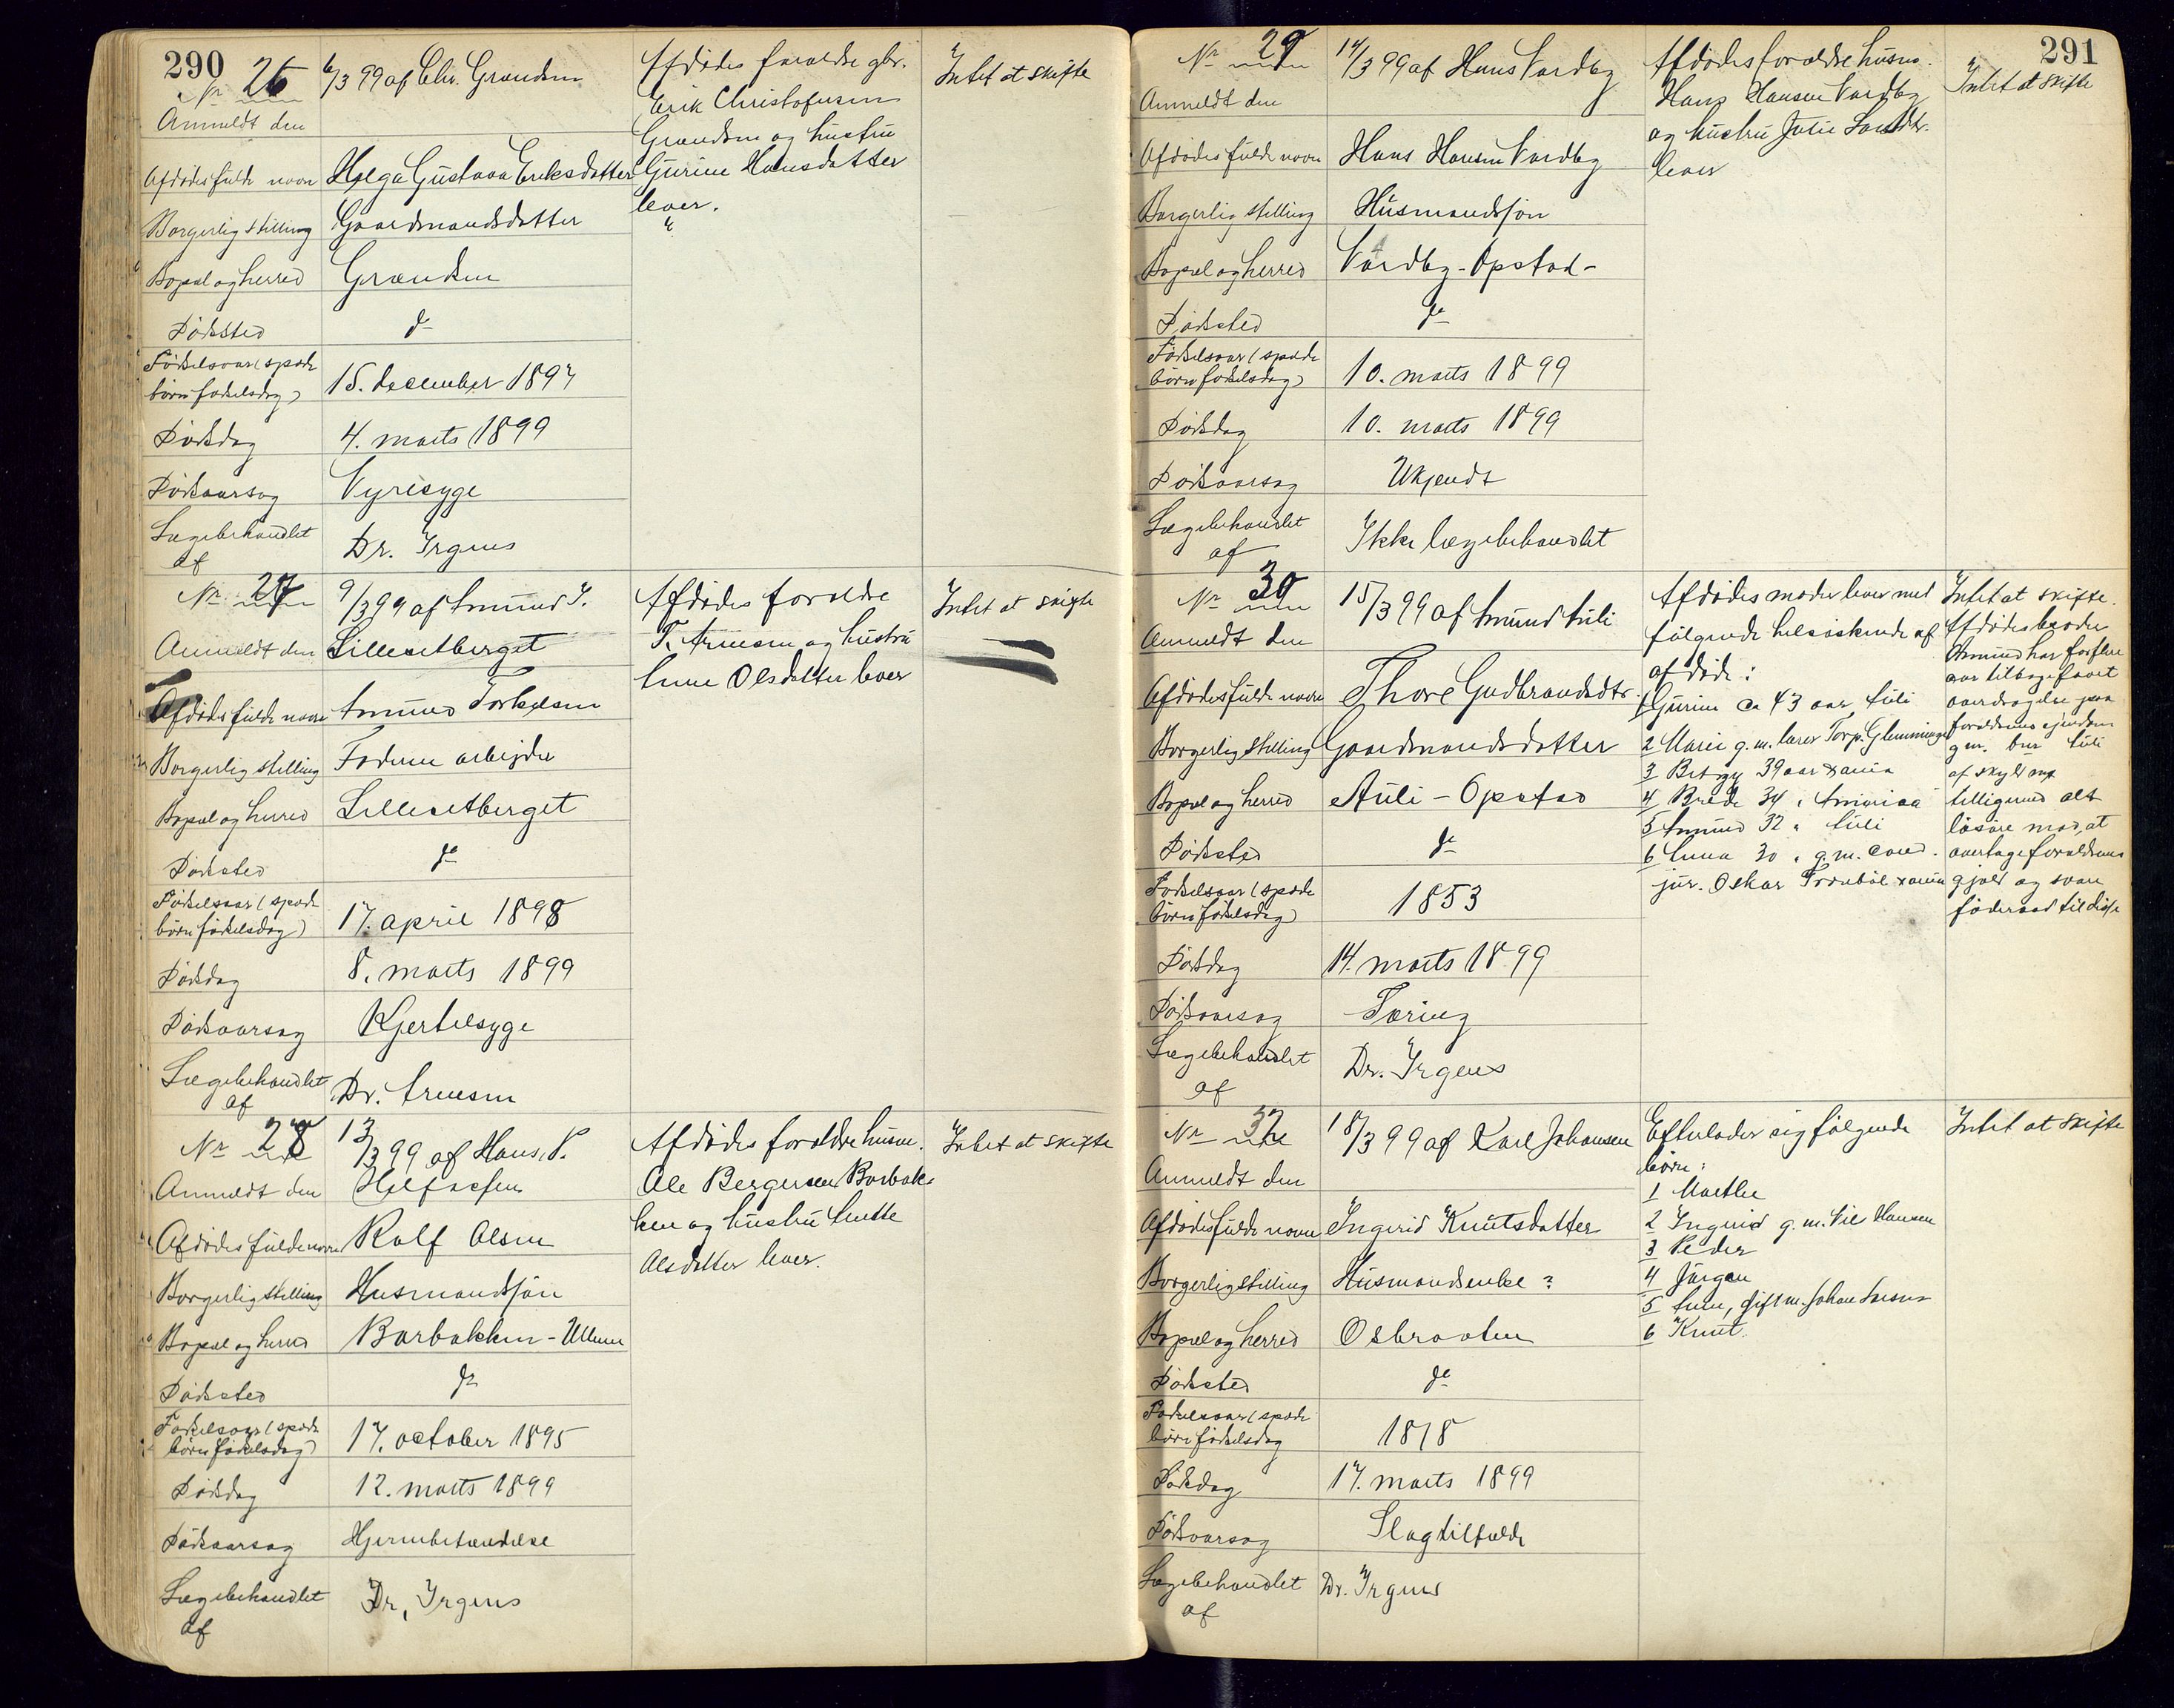 290
Nr 26
Anmeldt den
6/3 99 af Chr. Grandsen
Afdødes fulde navn Helga Gustava Eriksdatter
Borgerlig stilling Gaardmandsdatter
Bopæl og herred Grandsen
Dødssted do
Fødselsaar (spæde
børn fødselsdag) 15. december 1897
Dødsdag 4. marts 1899
Dødsaarsag Nyresyge
Lægebehandlet
af Dr. Irgens
Afdødes forældre gbr.
Erik Christofersen
Grandsen og hustru
Gurine Hansdatter
lever.
Intet at skifte
Nr 27
Anmeldt den
9/3 99 af Amund T.
Lillesetberget
Afdødes fulde navn Amund Torkelsen
Borgerlig stilling Faderen arbejder
Bopæl og herred Lillesetberget
Dødssted do
Fødselsaar (spæde
børn fødselsdag) 17. april 1898
Dødsdag 8. marts 1899
Dødsaarsag Kjertelsyge
Lægebehandlet
af Dr. Arnesen
Afdødes forældre
T. Arnesen og hustru
Anne Olsdatter lever
Intet at skifte
Nr 28
Anmeldt den
13/3 99 af Hans P.
Afdødes fulde navn Rolf Olsen
Borgerlig stilling Husmandsøn
Bopæl og herred Borbakken - Ullern
Dødssted do
Fødselsaar (spæde
børn fødselsdag) 17. october 1895
Dødsdag 12. marts 1899
Dødsaarsag Hjernebetændelse
Lægebehandlet
af Dr. Irgens
Afdødes forældre husm.
Ole Bergersen Borbak-
ken og hustru Anette
Olsdatter lever.
Intet at skifte
291
Nr 29
Anmeldt den
14/3 99 af Hans Vardby
Afdødes fulde navn Hans Hansen Vardby
Borgerlig stilling Husmandsøn
Bopæl og herred Vardby - Opstad -
Dødssted do
Fødselsaar (spæde
børn fødselsdag) 10. marts 1899
Dødsdag 10. marts 1899
Dødsaarsag Ukjendt
Lægebehandlet
af Ikke lægebehandlet
Afdødes forældre husm.
Hans Hansen Vardby
og hustru Julie
lever
Intet at skifte
Nr 30
Anmeldt den
15/3 99 af Amund Auli
Afdødes fulde navn Thore Gudbrandsdtr.
Borgerlig stilling Gaardmandsdatter
Bopæl og herred Auli - Opstad
Dødssted do
Fødselsaar (spæde
børn fødselsdag) 1853
Dødsdag 14. marts 1899
Dødsaarsag Tæring
Lægebehandlet
af Dr. Irgens
Afdødes moder lever med
følgende helsøskende af
afdøde:
1 Gurine ca 43 aar Auli
2 Marie g. m. lærer Torp. Glemminge
3 Betzy 39 aar Xania
4 Brede 34 " Amerika
5 Amund 32 " Auli
6 Anna 30 " g. m. cand.
jur. Oskar Trønbøl Xania
Intet at skifte.
Afdødes broder
Amund har for flere
aar tilbage faaet
overdragelse paa
forældrenes ejendom
gnr. bnr Auli
af skyld mrk
tilligemed alt
løsøre mod, at
overtage forældrenes
gjæld og svare
føderaad til disse
Nr 31
Anmeldt den
18/3 99 af Karl Johansen
Afdødes fulde navn Ingerid Knutsdatter
Borgerlig stilling Husmandsenke ?
Bopæl og herred Osbraaten
Dødssted do
Fødselsaar (spæde
børn fødselsdag 1818
Dødsdag 17. marts 1899
Dødsaarsag Slagtilfælde
Lægebehandlet
af Dr. Irgens
Efterlader sig følgende
børn:
1 Marthe
2 Ingerid g. m. Nils Hansen
3 Peder
4 Jørgen
5 Anne, gift m. Johan Larsen
6 Knut.
Intet at skifte